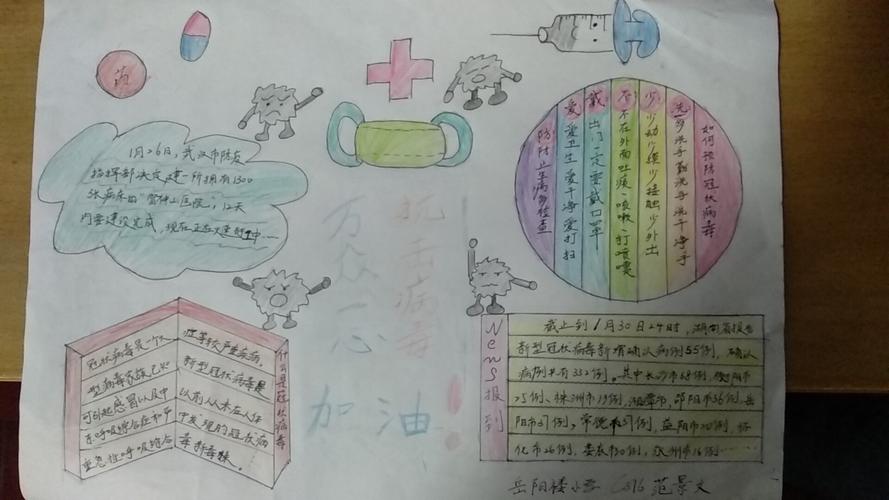 药
1月26日，武汉市防疫
指挥部决定建一所拥有1300
张病床的"雷神山医院"；12天
内要建设完成，现在正在火速赶工中……
如何预防冠状病毒
洗多洗手勤洗手洗干净手
少少动少摸少接触少外出
不不在外面吐痰、咳嗽、打喷嚏
戴出门一定要戴口罩
爱爱卫生爱干净爱打扫
防防止生病多检查
抗击病毒
万众一心
加油！
什么是冠状病毒
冠状病毒是一个大
型病毒家族，已知
可引起感冒以及中
东呼吸综合症和严
重急性呼吸综合
症等较严重疾病。
新型冠状病毒是
以前从未在人体
中发现的冠状病
毒新毒株。
News报到
截止到1月30日24时，湖南省报告
新型冠状病毒新增确认病例55例，确认
病例共有332例。其中长沙市68例，衡阳市
25例、株洲市19例，湘潭市，邵阳市36例，岳
阳市 例，常德 例，益阳市20例，怀
化市26例，娄底市30例，永州市16例……
岳阳楼小学 C516 范景文